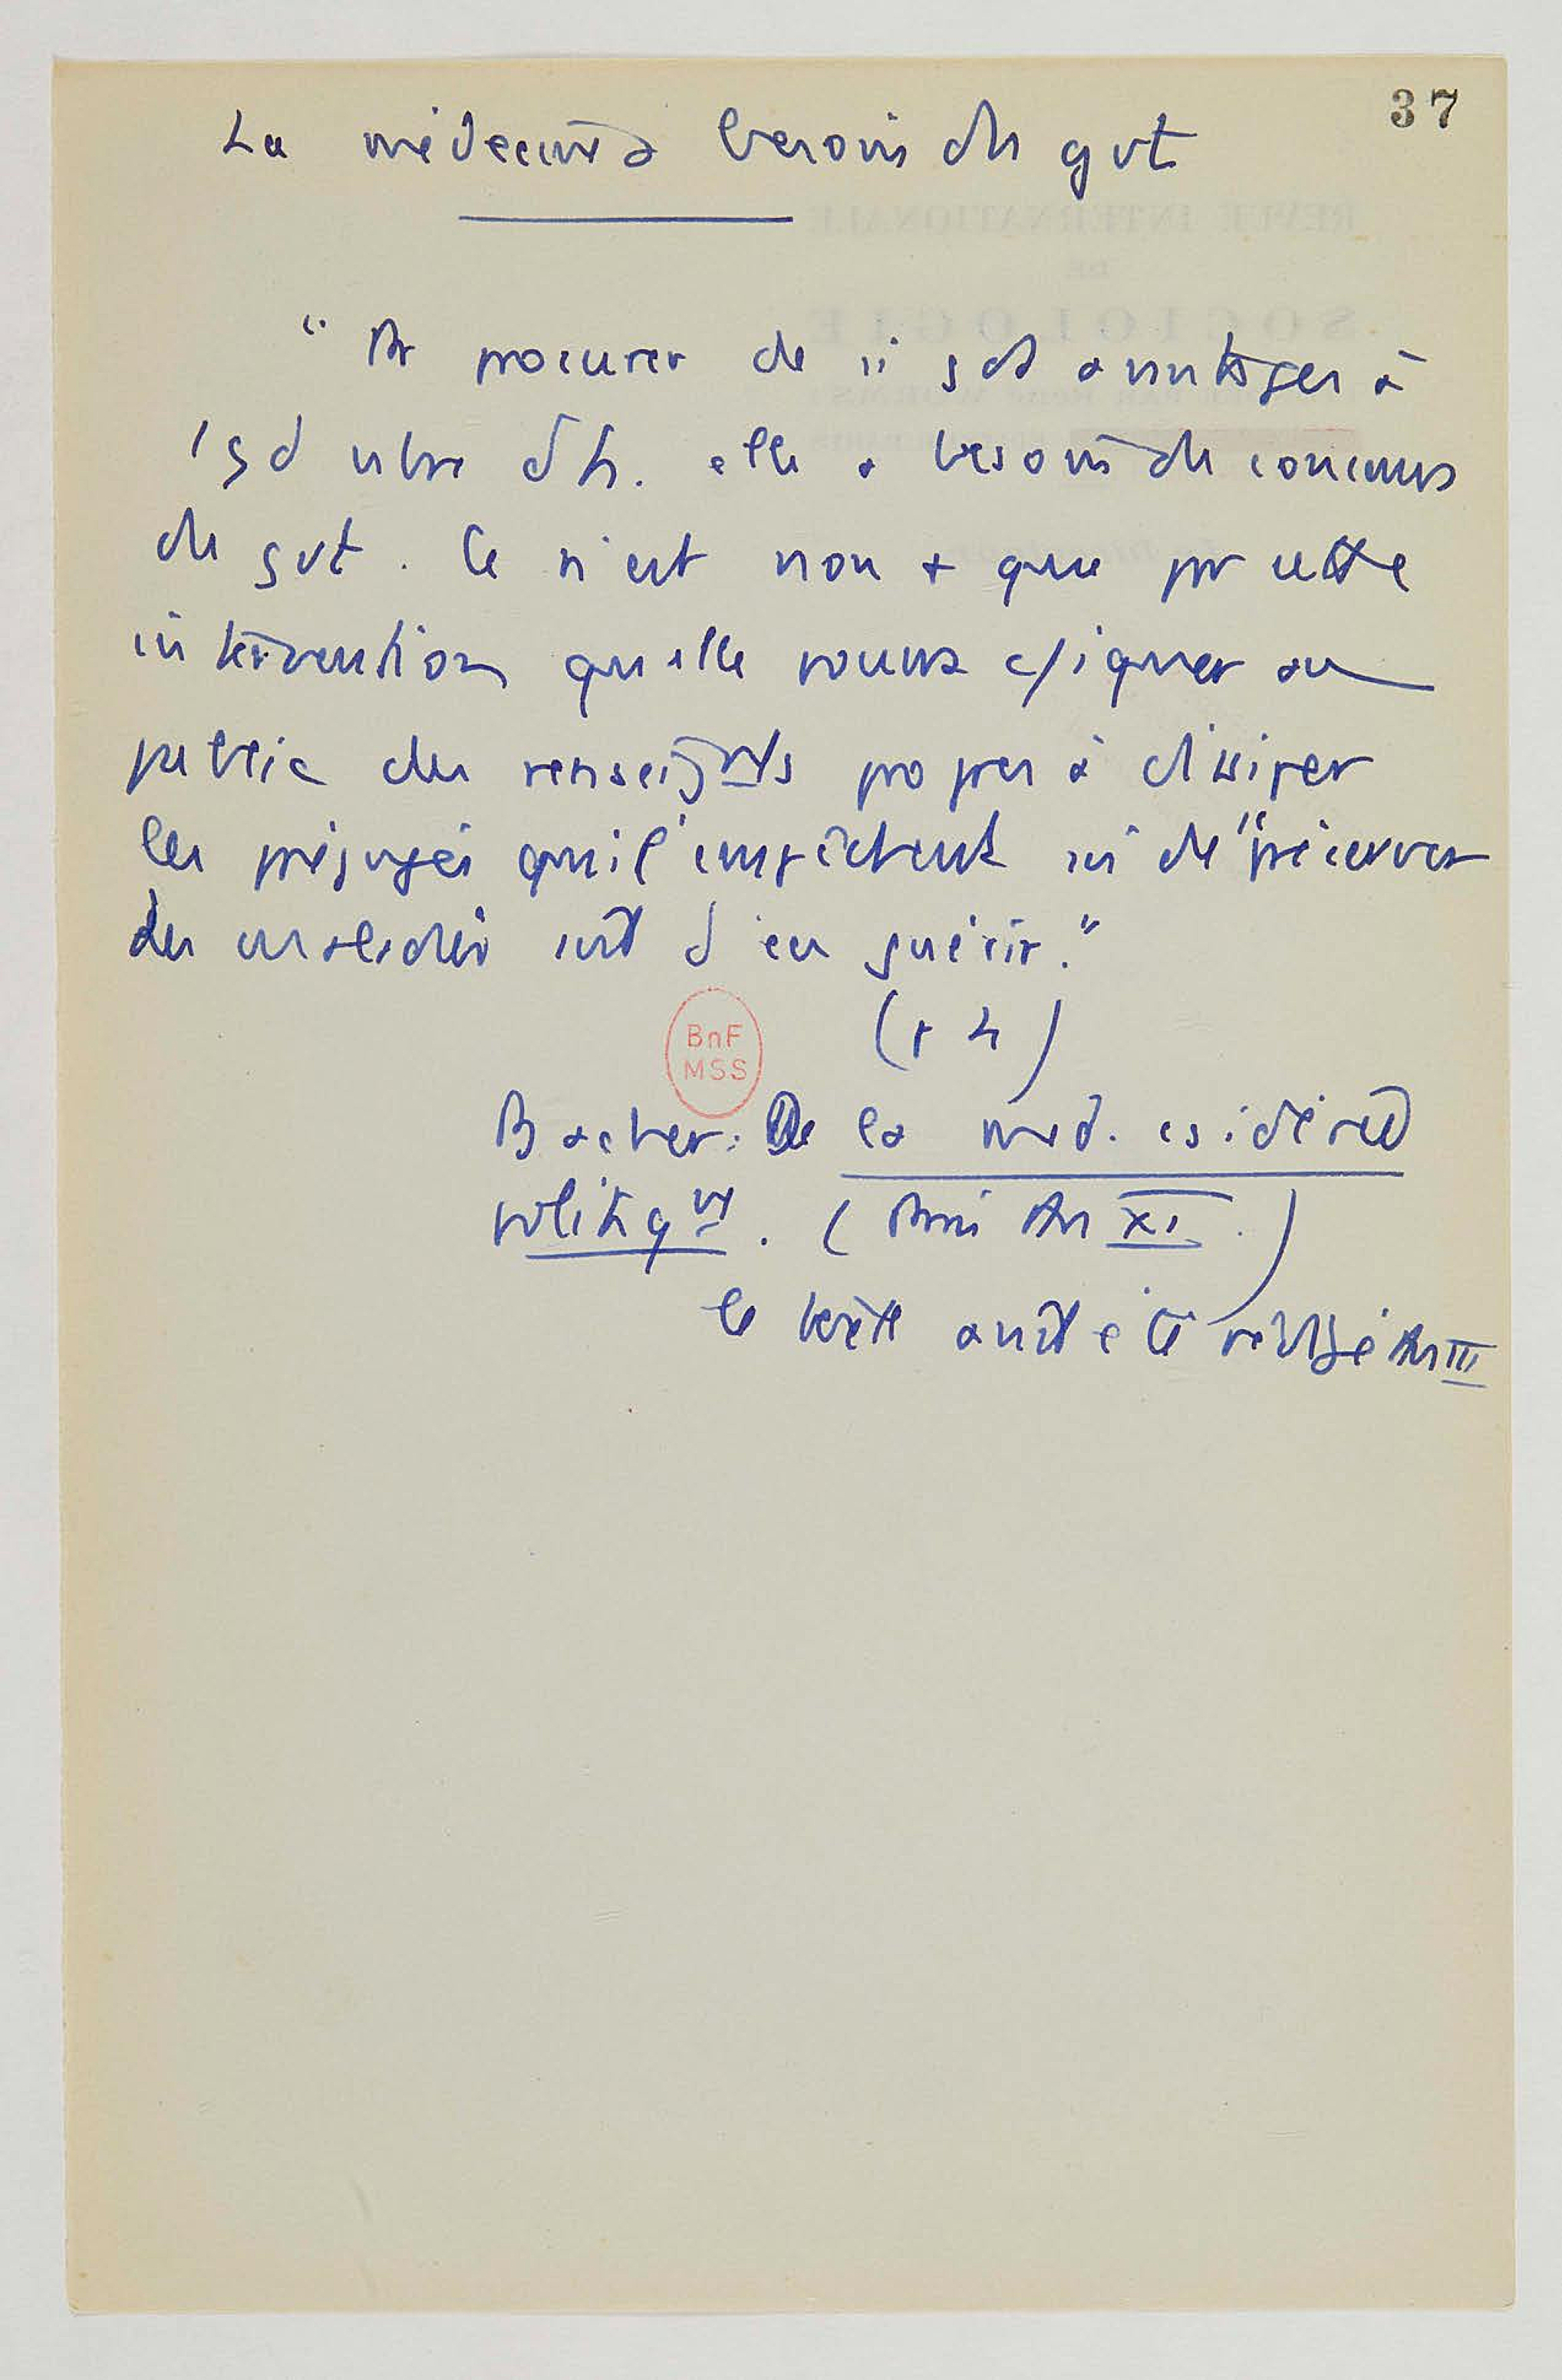 37
La médecine a besoin du gvt
" Pr procurer de si gds avantages à
1 gd nbre d'h. elle a besoin du concours
du gvt. Ce n'est non + que par cette
intervention qu'elle pourra c/iquer au
public des renseignts propres à dissiper
les préjugés qui l'empêchent ni de préserver
des maladies soit d'en guérir."
(p 4)
BnF
MSS
Bacher. De la méd. csidérée
politiqut. ( An XI. )
le texte avait été rédigé An III